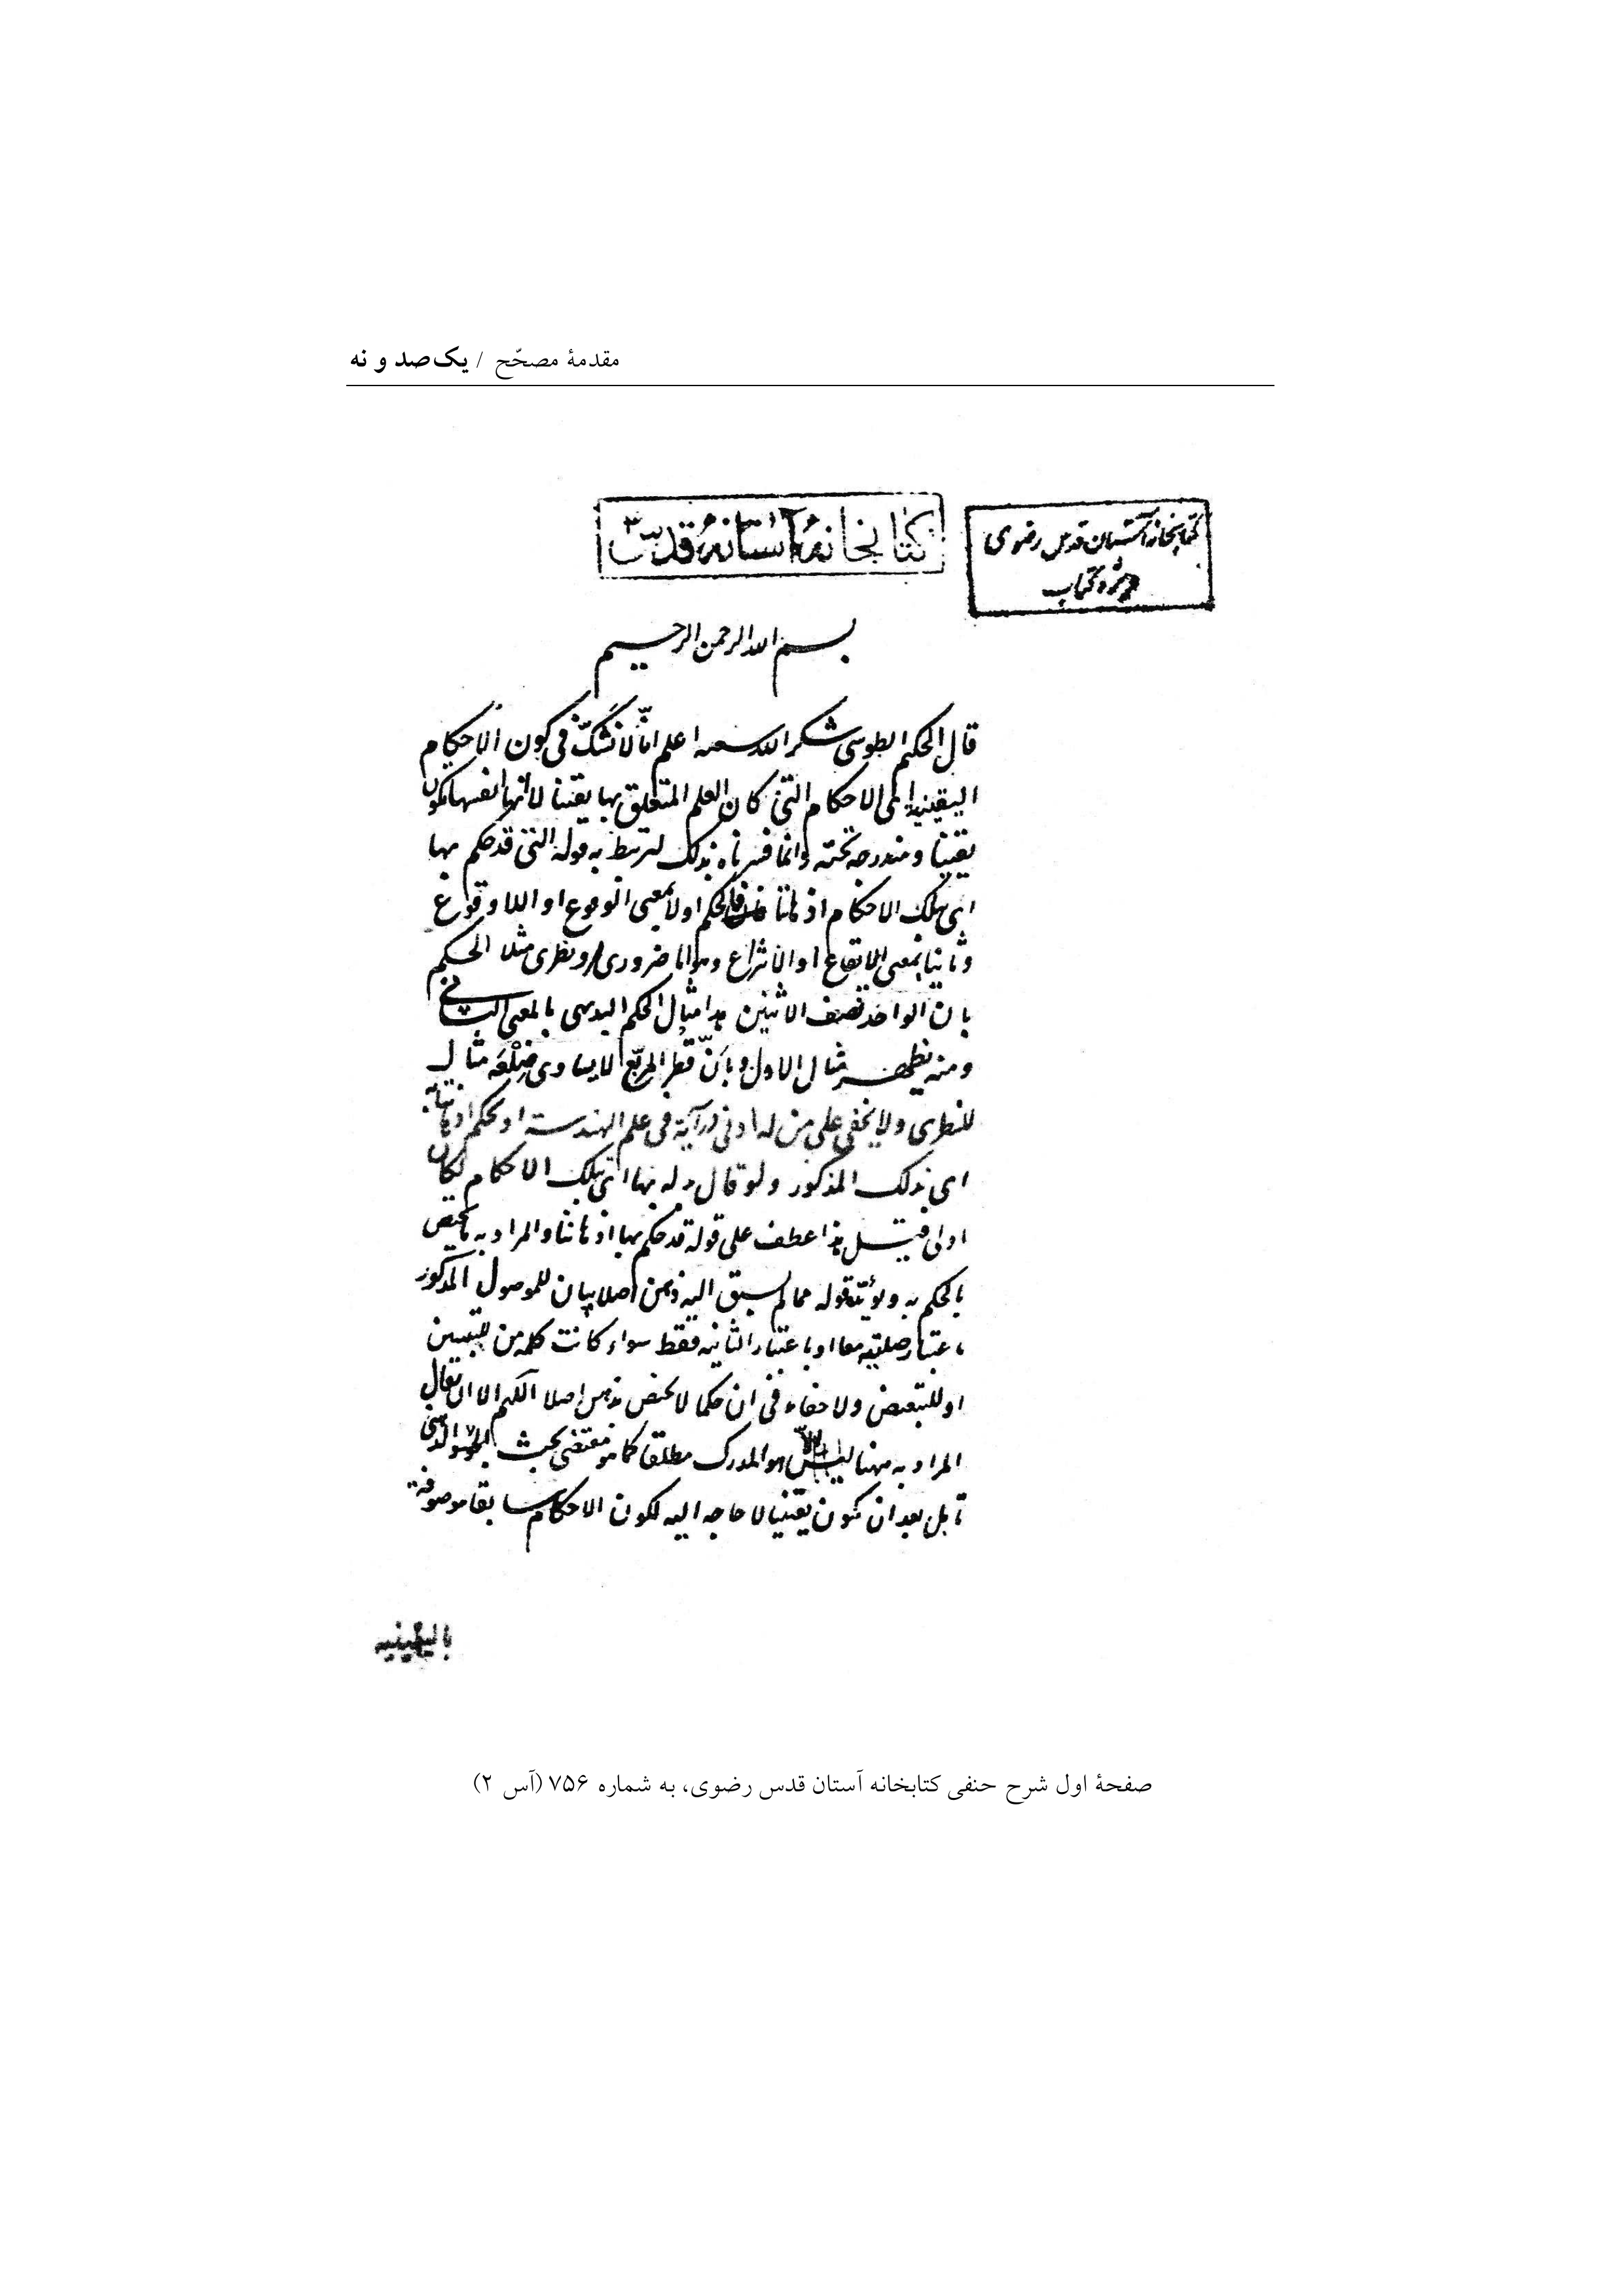 مقدمۀ مصحّح / یک‌صد و نه
کتابخانۀ آستانۀ قدس
کتابخانه آستان قدس رضوی
بسم الله الرحمن الرحیم
قال الحکیم الطوسی شکر الله سعیه اعلم انّا لا نشکّ فی کون الاحکام
الیقینیه ای الاحکام التی کان العلم المتعلق بها یقینا لا انها انفسها تکون
یقینا و مندرجه تحته و انما فسرناه بذلک لیرتبط به قوله التی قد حکم بها
ای بتلک الاحکام اذهاننا فالحکم اولا بمعنی الوقوع او اللاوقوع
و ثانیا بمعنی الایقاع او الانتزاع و هو اما ضروری او نظری مثلا الحکم
بان الواحد نصف الاثنین هذا مثال الحکم البدیهی بالمعنی الثانی
و منه یظهر مثال الاول و بأنّ قطر المربّع لا یساوی ضلعه مثال
للنظری و لا یخفی علی من له ادنی درایة فی علم الهندسة او یحکم اذهاننا به
ای بذلک المذکور و لو قال بدله بها ای بتلک الاحکام لکان
اولی قیل هذا عطف علی قوله قد حکم بها اذهاننا و المراد به ما یختص
بالحکم به و یؤیّده قوله مما لم یسبق الیه ذهن اصلا بیان للموصول المذکور
باعتبار صلتیه معا او باعتبار الثانیه فقط سواء کانت کلمه من للتبیین
او للتبعیض و لا خفاء فی ان حکما لا یختص بذهن اصلا اللهم الا ان یقال
المراد به ههنا لیس هو المدرک مطلقا کما هو مقتضی بحث
قابل بعد ان تکون یقینیا لا حاجه الیه لکون الاحکام سابقا موصوفة
بالیقینیه
صفحۀ اول شرح حنفی کتابخانه آستان قدس رضوی، به شماره ۷۵۶ (آس ۲)